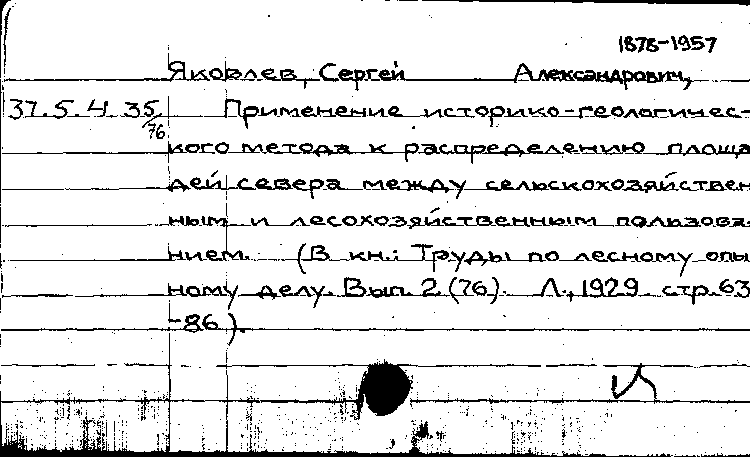 1878-1957
Яковлев, Сергей Александрович,
37.5.4.35/76 Применение историко-геологичес-
кого метода к распределению площа
дей севера между сельскохозяйствен
ным и лесохозяйственным пользова-
нием. (В кн.: Труды по лесному опы
ному делу. Вып. 2 (76). Л., 1929 стр. 63
-86).